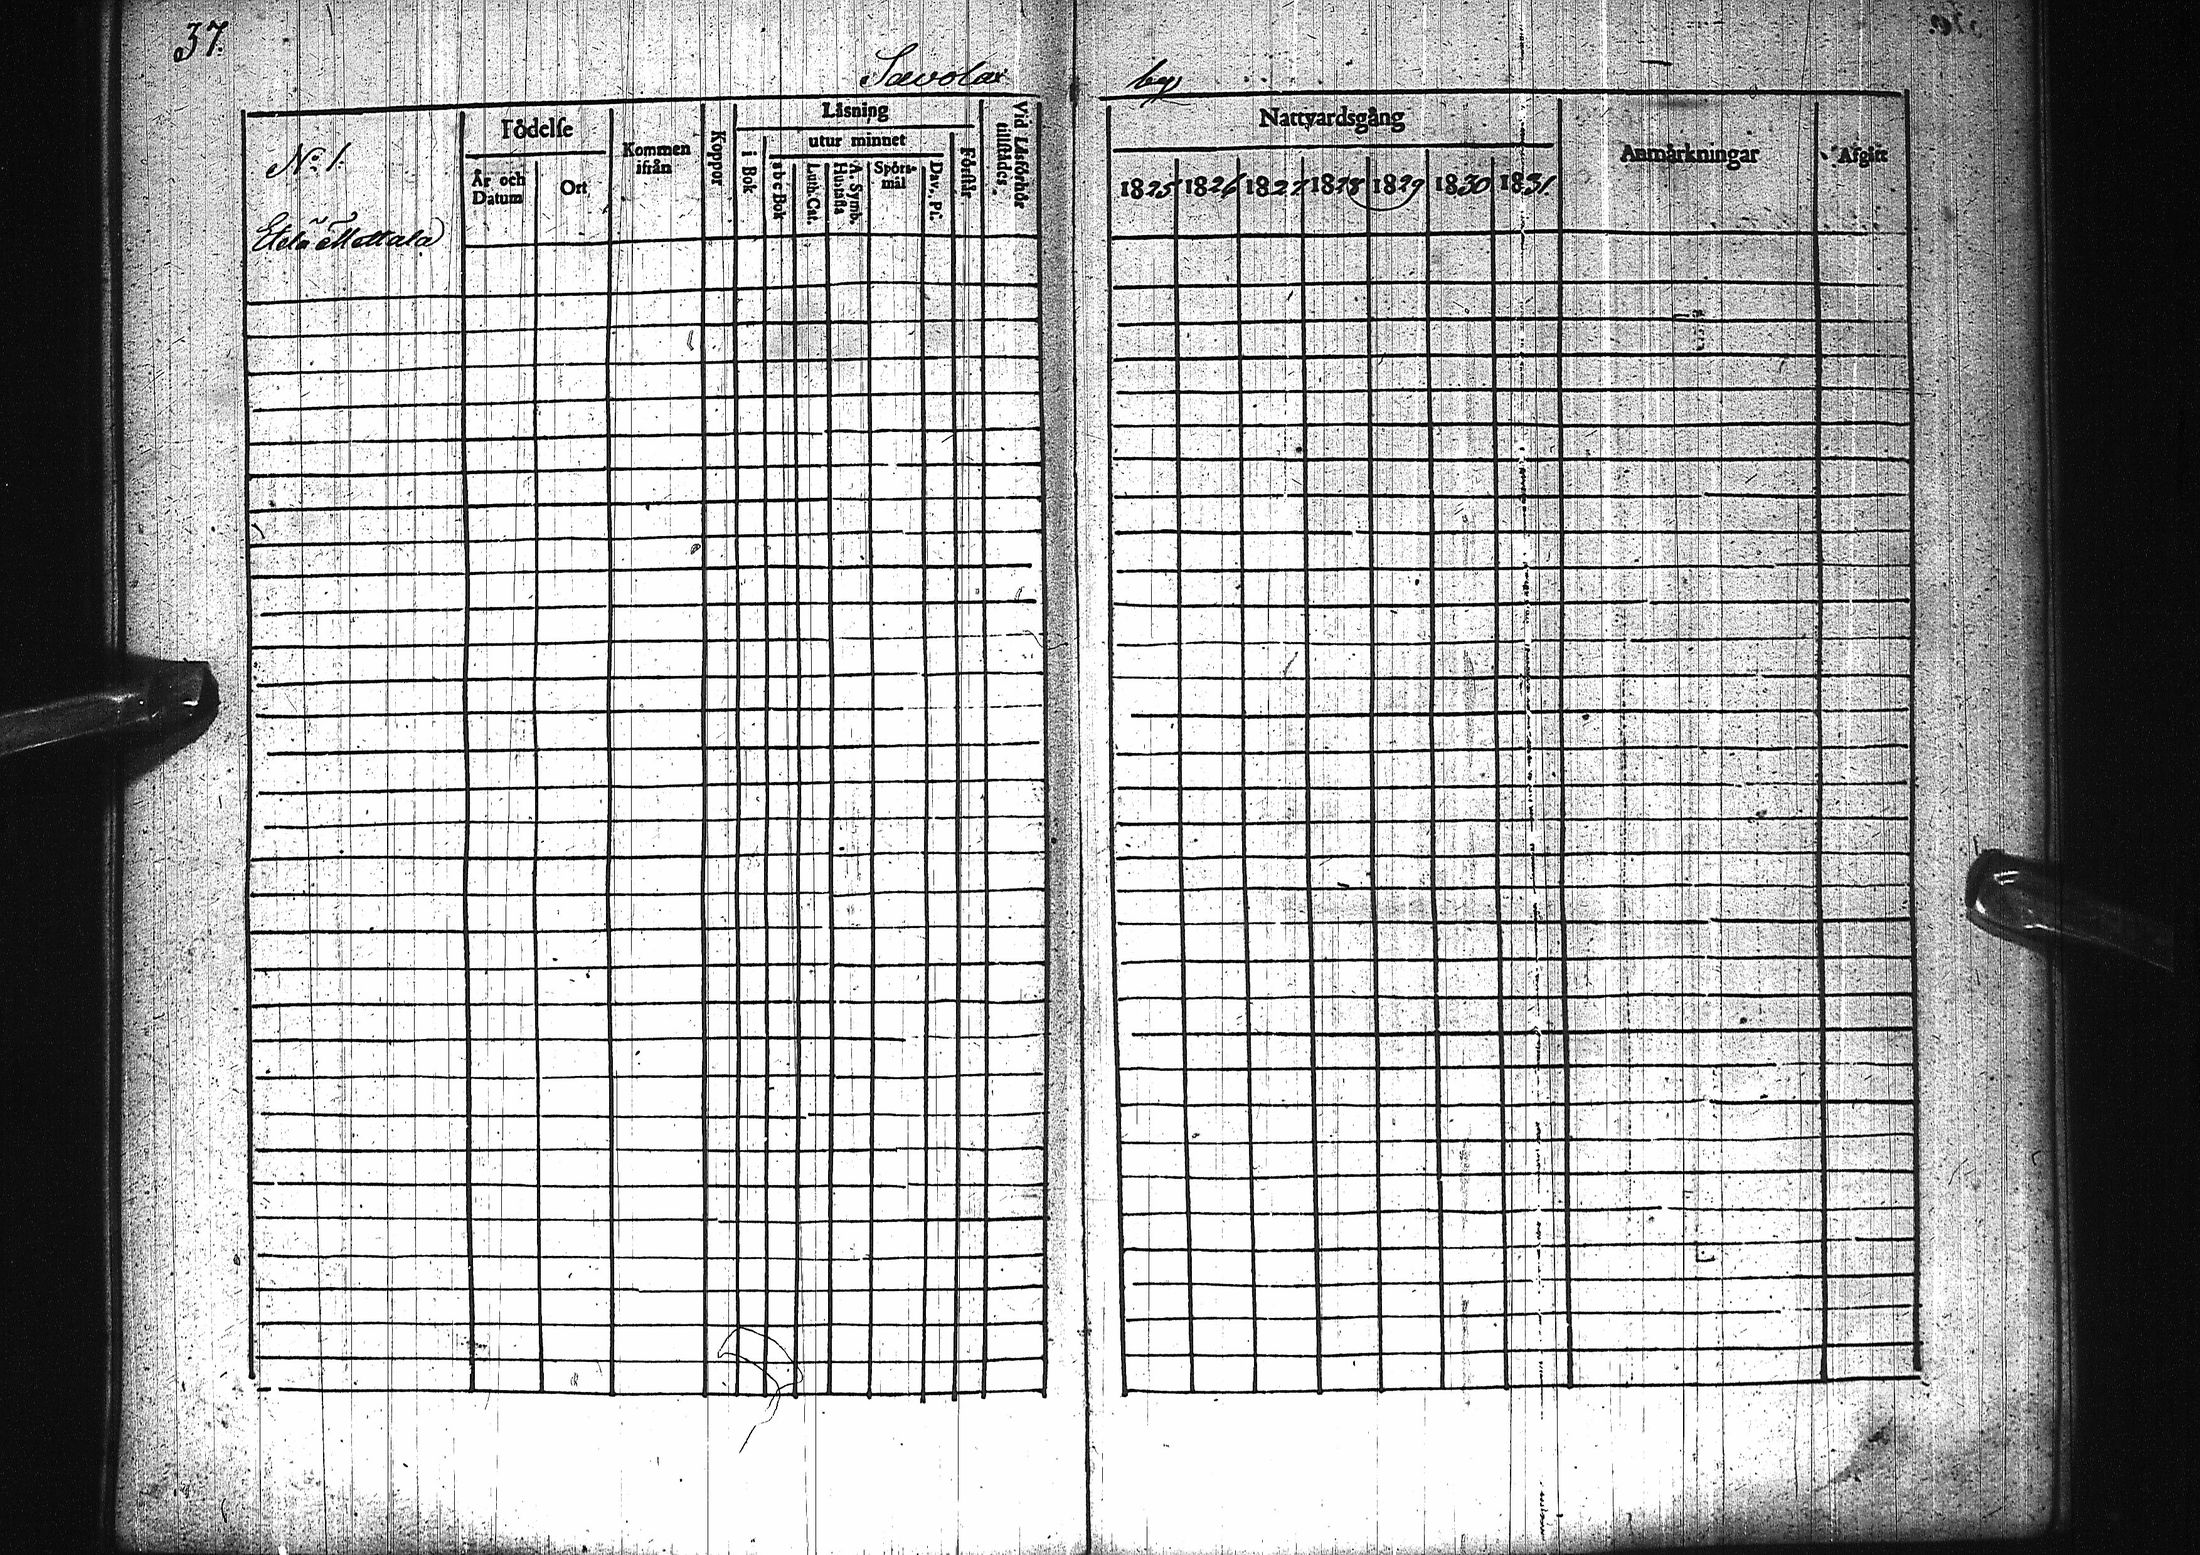 37.
Savolax by
No 1.
Etelä Mattala
Födelse
År och Datum
Ort
Kommen ifrån
Koppor
Läsning
i Bok
utur minnet
a b c Bok
Luth. Cat.
A. Symb. Hustafla
Spörs-mål
Dav. Ps.
Förstår
Vid Läsförhör tillstädes.
Nattvardsgång
1825 1826 1827 1828 1829 1830 1831.
Anmärkningar
Afgift